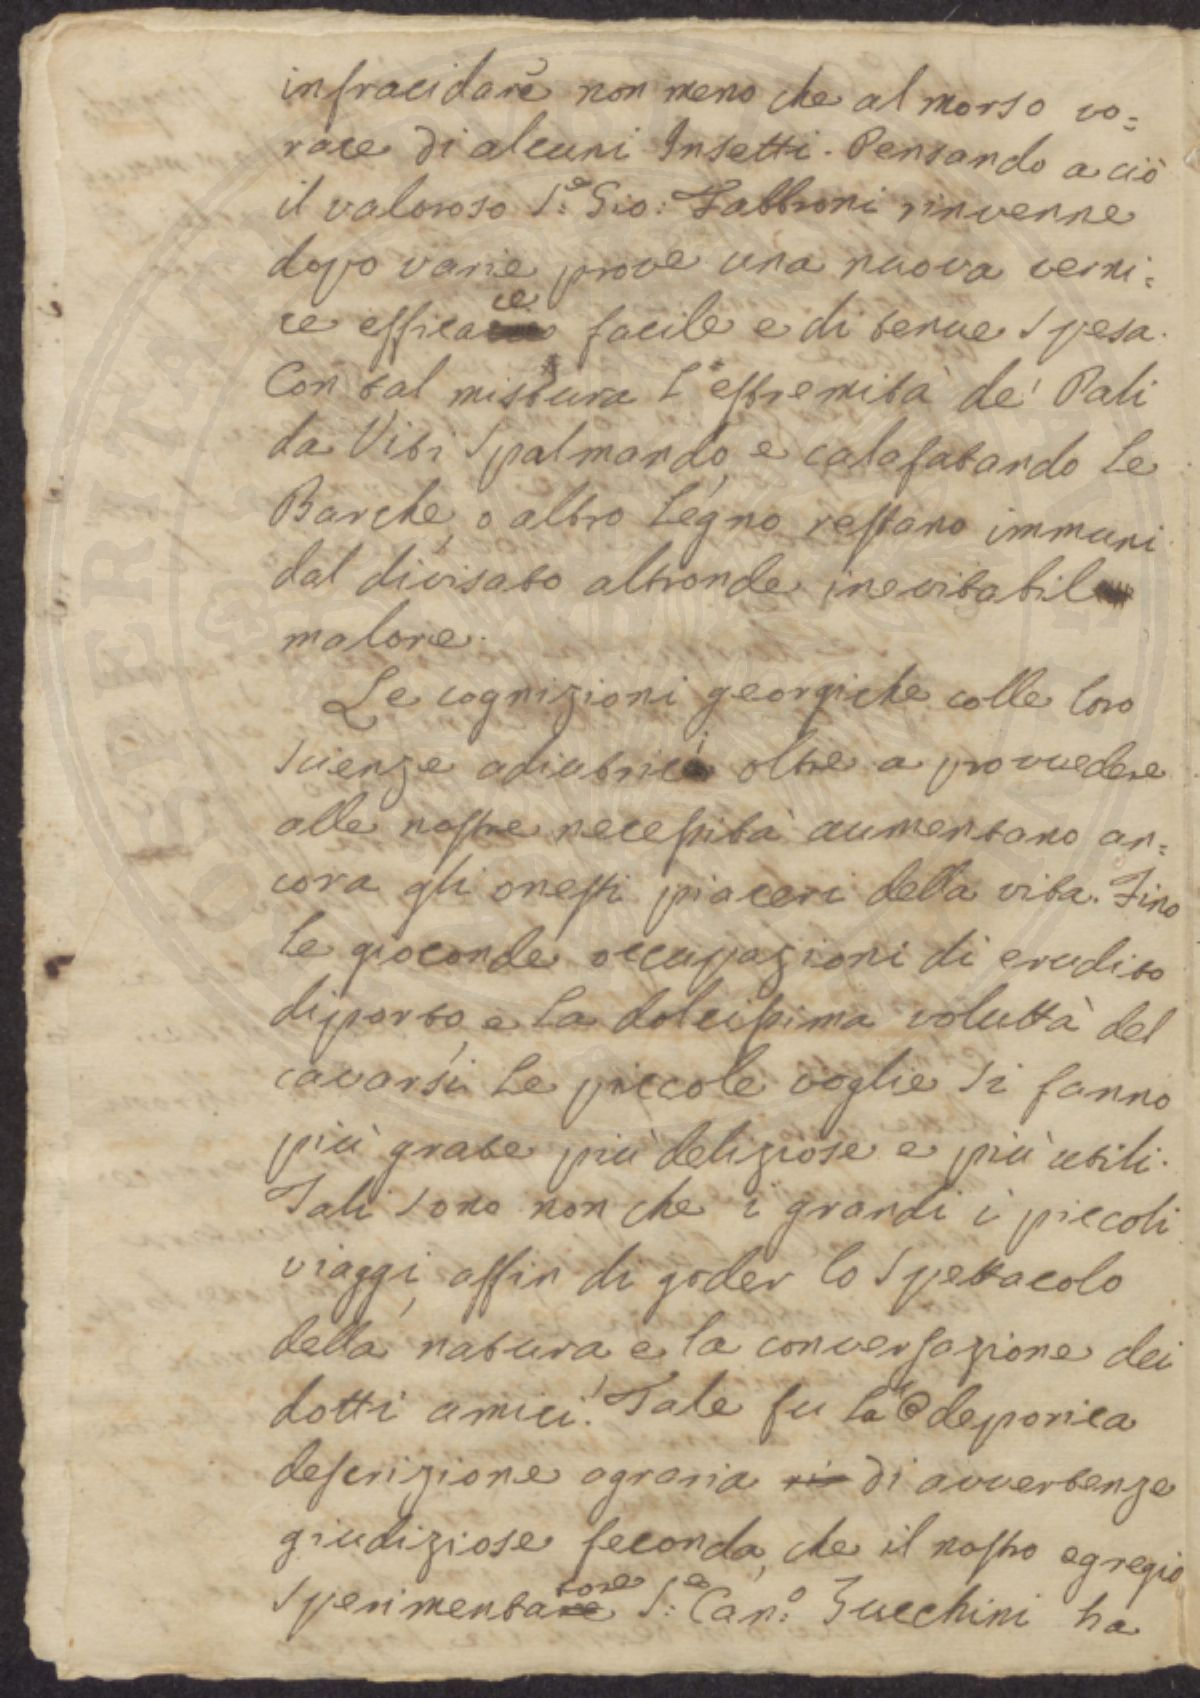 infracidare non meno che al morso vo=
race di alcuni Insetti. Pensando a ciò
il valoroso S.e Gio: Fabbroni rinvenne
dopo varie prove una nuova verni=
ce efficace facile e di tenue spesa.
Con tal mistura l'estremità de' Pali
da Viti spalmando, e calafatando le
Barche, o altro legno restano immuni
dal divisato altronde inevitabil
malore.
Le cognizioni georgiche colle loro
scienze adiutrici oltre a provvedere
alle nostre necessità aumentano an=
cora gli onesti piaceri della vita. Fino
le gioconde occupazioni di erudito
diporto, e la dolcissima voluttà del
cavarsi le piccole voglie si fanno
più grate più deliziose e più utili.
Tali sono non che i grandi i piccoli
viaggi, affin di goder lo spettacolo
della natura e la conversazione dei
dotti amici. Tale fu la Odeporica
descrizione agraria di avvertenze
giudiziose feconda, che il nostro egregio
sperimentatore S.e Can.o Zucchini ha
OSPERITATI